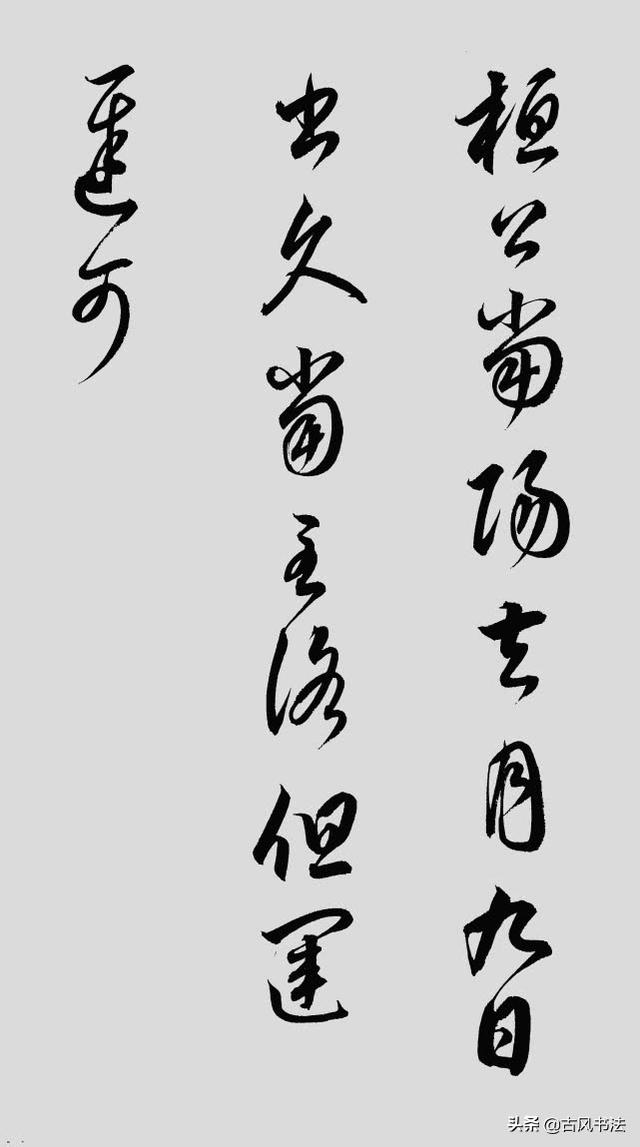 桓公當陽去月九日
書久當至洛但運
遲可
头条 @古风书法